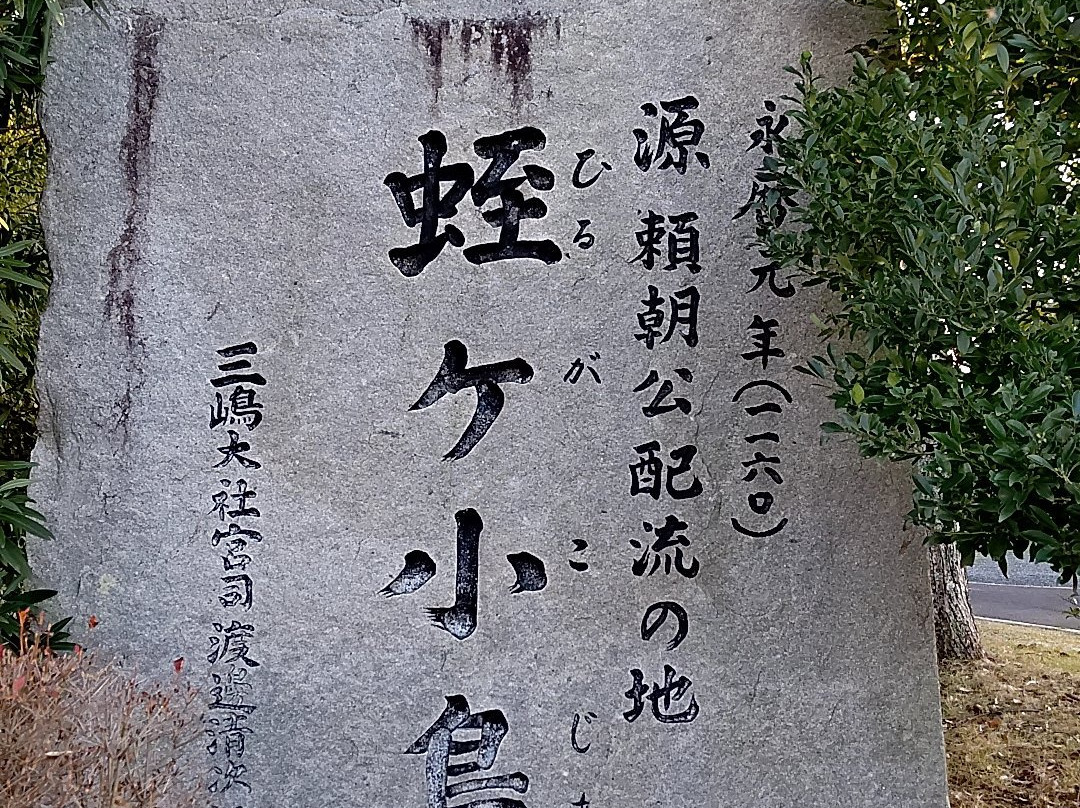 永暦元年(一一六〇)
源頼朝公配流の地
ひるがこじ
蛭ケ小島
三嶋大社宮司 渡邉清次